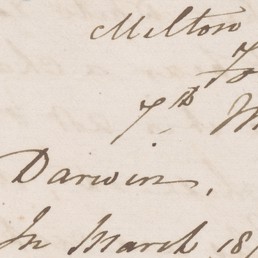 Melton
7th M
Darwin,
In March 18